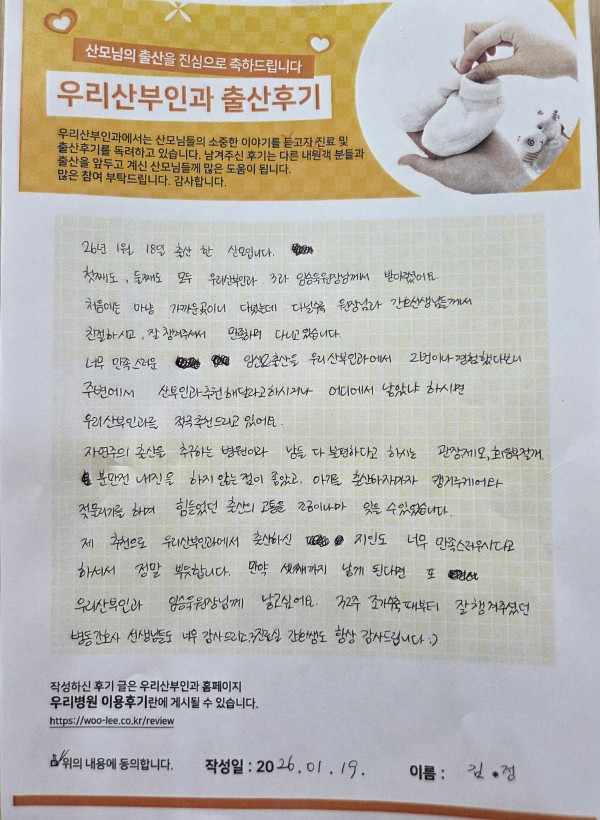 산모님의 출산을 진심으로 축하드립니다
우리산부인과 출산후기
우리산부인과에서는 산모님들의 소중한 이야기를 듣고자 진료 및
출산후기를 독려하고 있습니다. 남겨주신 후기는 다른 내원객 분들과
출산을 앞두고 계신 산모님들께 많은 도움이 됩니다.
많은 참여 부탁드립니다. 감사합니다.
26년 1월 18일 출산 한 산모입니다.
첫째도, 둘째도 모두 우리산부인과 3과 임승욱원장님께서 받아주셨어요.
처음에는 마냥 가까운곳이니 다녔는데 다닐수록 원장님과 간호선생님들께서
친절하시고, 잘 챙겨주셔서 만족하며 다니고있습니다.
너무 만족스러운 임신&출산을 우리산부인과에서 2번이나 경험했다보니
주변에서 산부인과추천해달라고하시거나 어디에서 낳았냐 하시면
우리산부인과를 적극추천드리고 있어요.
자연주의 출산을 추구하는 병원이라 남들 다 불편하다고 하시는 관장제모, 회음부절개,
분만전 내진을 하지 않는점이 좋았고, 아기를 출산하자마자 캥거루케어와
젖물리기를 하며 힘들었던 출산의 고통을 조금이나마 잊을 수있었습니다.
제 추천으로 우리산부인과에서 출산하신 지인도 너무 만족스러우시다고
하셔서 정말 뿌듯합니다. 만약 셋째까지 낳게 된다면 또
우리산부인과 임승욱원장님께 낳고싶어요. 32주 조기수축때부터 잘챙겨주셨던
병동간호사 선생님들도 너무 감사드리고, 3진료실 간호쌤도 항상 감사드립니다 :)
작성하신 후기 글은 우리산부인과 홈페이지
우리병원 이용후기란에 게시될 수 있습니다.
https://woo-lee.co.kr/review
위의 내용에 동의합니다. 작성일 : 2026.01.19. 이름 : 김*정